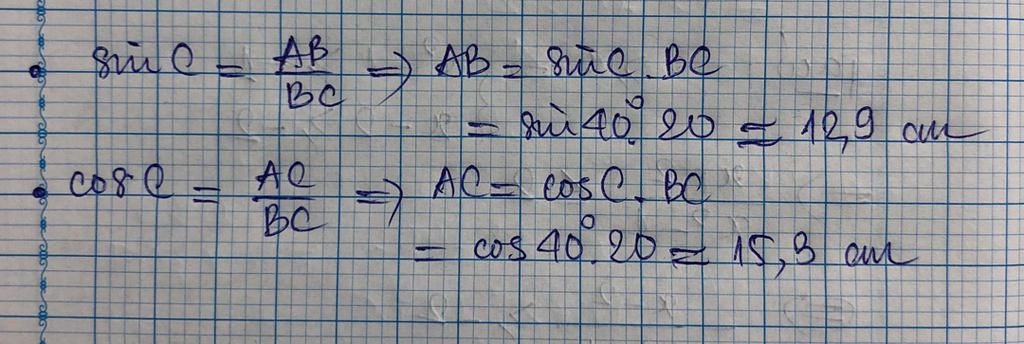 sin C = AB/BC => AB = sin C . BC
= sin 40° . 20 ≈ 12,9 cm
cos C = AC/BC => AC = cos C . BC
= cos 40° . 20 ≈ 15,3 cm